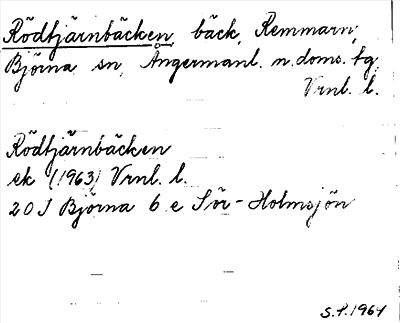 Rödtjärnbäcken, bäck, Remmarn,
Björna sn, Ångermanl. n. doms. tg.
Vrnl. l.
Rödtjärnbäcken
ek (1963) Vrnl. l.
20 J Björna 6 e Sör-Holmsjön
S.P. 1964